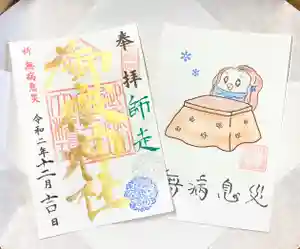 奉拝
師走
御嶽神社
祈 無病息災
令和二年十二月吉日
無病息災